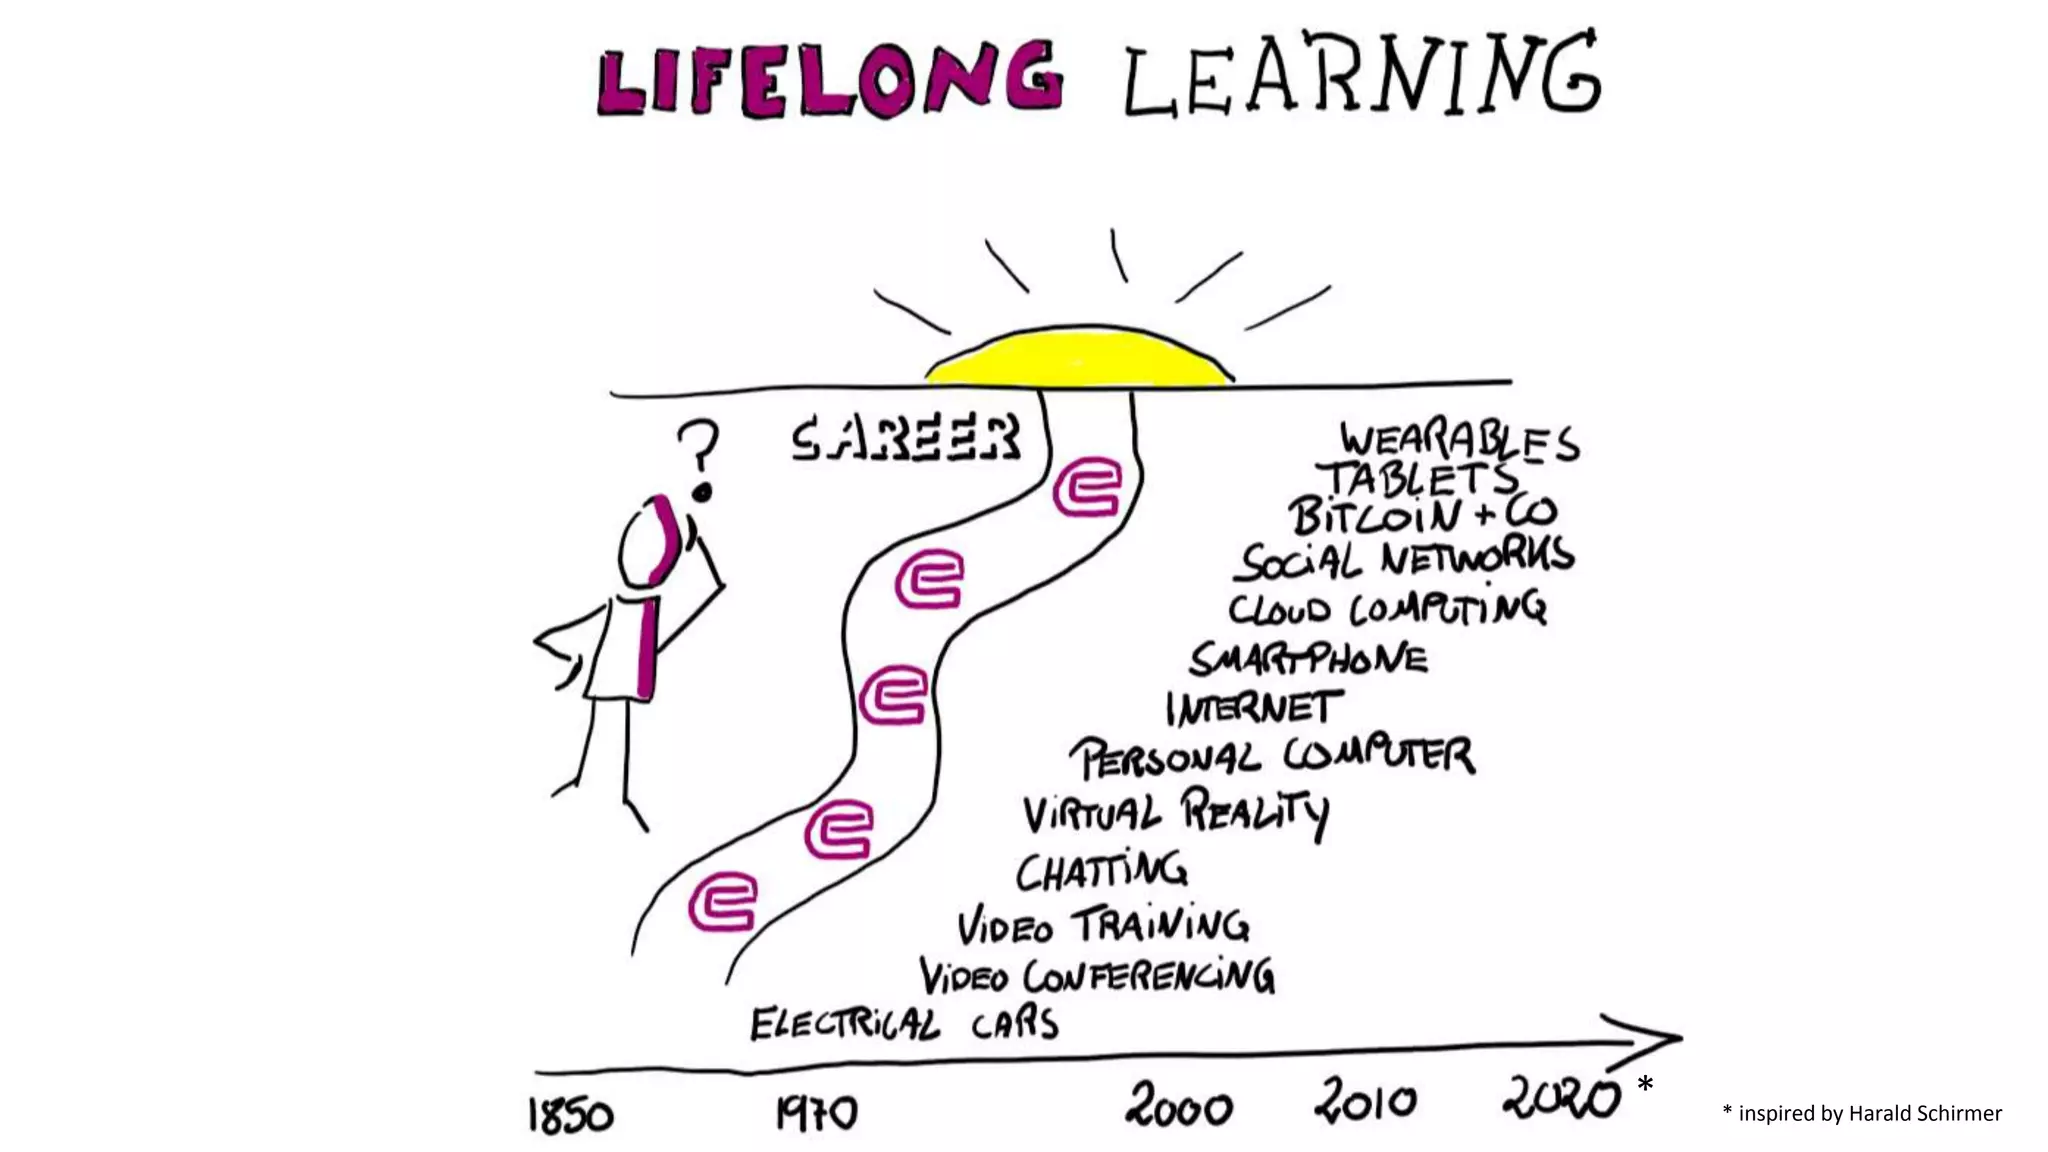 LIFELONG LEARNING
?
CAREER
WEARABLES
TABLETS
BITCOIN + CO
SOCIAL NETWORKS
CLOUD COMPUTING
SMARTPHONE
INTERNET
PERSONAL COMPUTER
VIRTUAL REALITY
CHATTING
VIDEO TRAINING
VIDEO CONFERENCING
ELECTRICAL CARS
e
e
e
e
e
1850 1970 2000 2010 2020 *
* inspired by Harald Schirmer